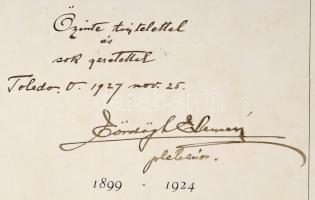 Őszinte tisztelettel
és
sok szeretettel
Toledo. O. 1927 nov. 25.
Eördögh Elemér
plebános.
1899 . 1924